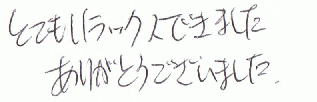 とてもリラックスできました
ありがとうございました.